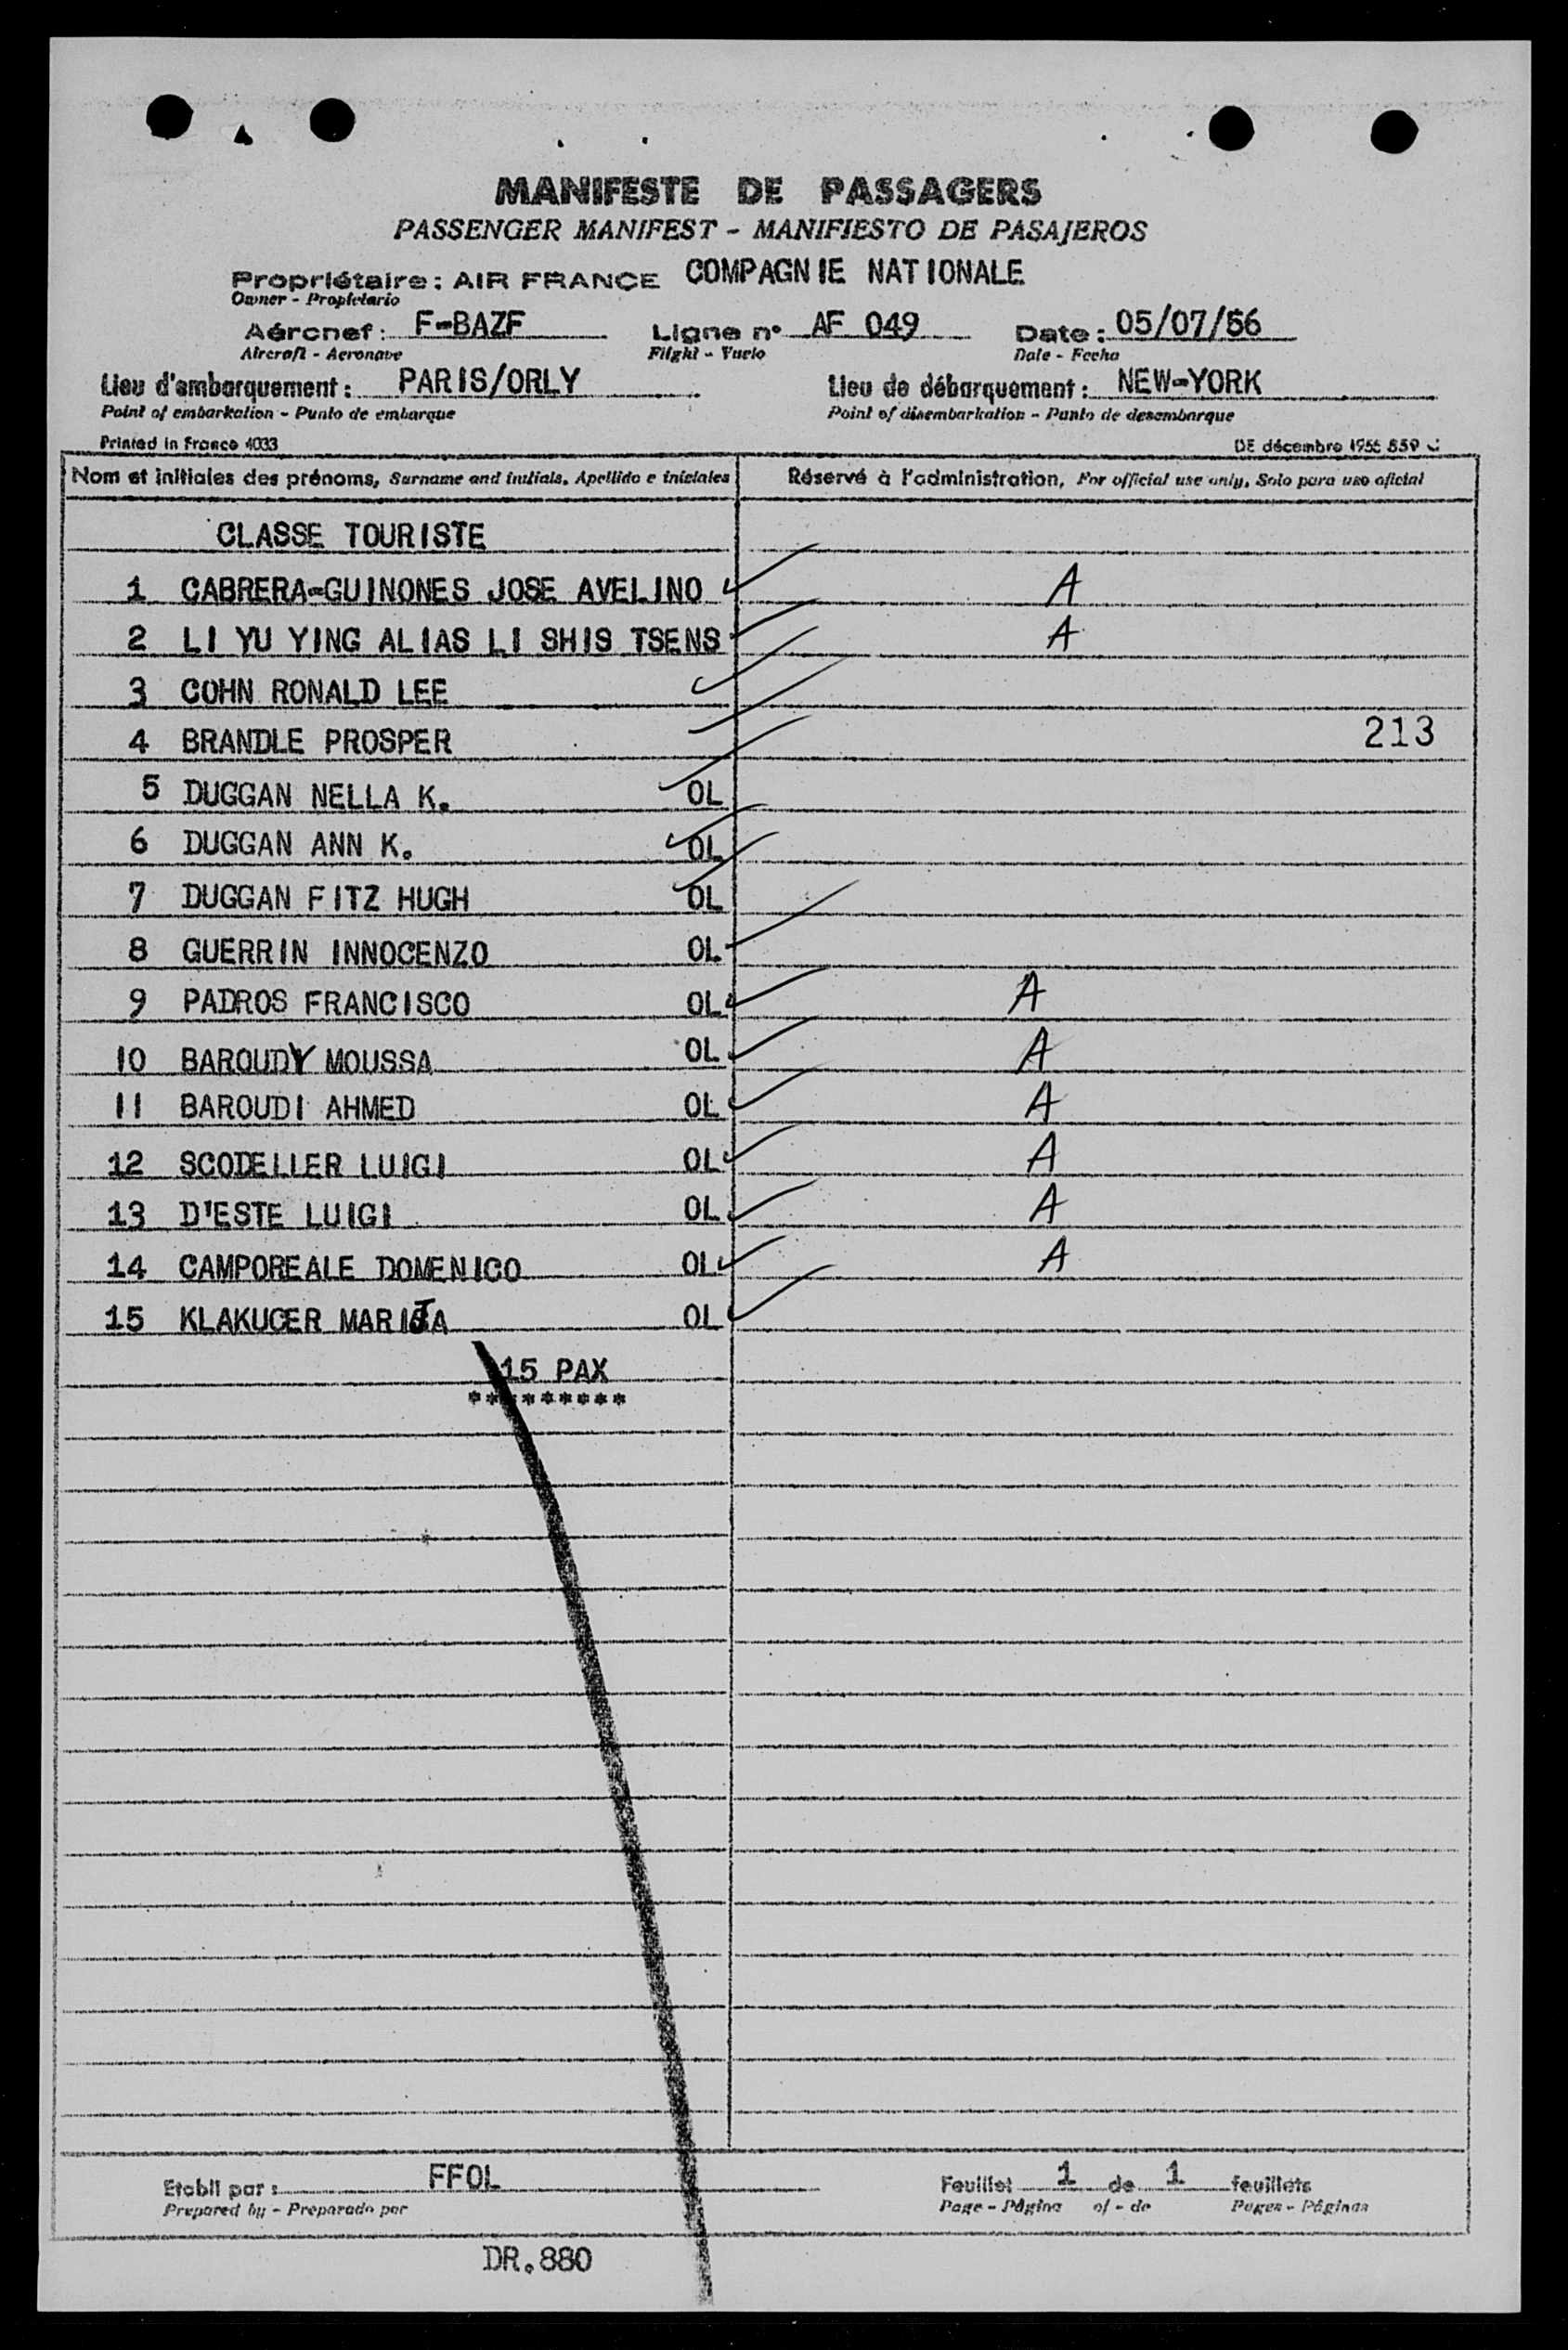 MANIFESTE DE PASSAGERS
PASSENGER MANIFEST - MANIFIESTO DE PASAJEROS
Propriétaire : AIR FRANCE COMPAGNIE NATIONALE
Owner - Propietario
Aéronef : F-BAZF Ligne n° AF 049 Date : 05/07/56
Aircraft - Aeronave Flight - Vuelo Date - Fecha
Lieu d'embarquement : PARIS/ORLY Lieu de débarquement : NEW-YORK
Point of embarkation - Punto de embarque Point of disembarkation - Punto de desembarque
Printed in France 4033 DE décembre 1955 859
Nom et initiales des prénoms, Surname and initials, Apellido e iniciales Réservé à l'administration, For official use only, Solo para uso oficial
CLASSE TOURISTE
1 CABRERA-GUINONES JOSE AVELINO A
2 LI YU YING ALIAS LI SHIS TSENS A
3 COHN RONALD LEE
4 BRANDLE PROSPER 213
5 DUGGAN NELLA K. OL
6 DUGGAN ANN K. OL
7 DUGGAN FITZ HUGH OL
8 GUERRIN INNOCENZO OL
9 PADROS FRANCISCO OL A
10 BAROUDY MOUSSA OL A
11 BAROUDI AHMED OL A
12 SCODELLER LUIGI OL A
13 D'ESTE LUIGI OL A
14 CAMPOREALE DOMENICO OL A
15 KLAKUCER MARIJA OL
15 PAX
*********
Etabli par : FFOL Feuillet 1 de 1 feuillets
Prepared by - Preparado por Page - Página of - de Pages - Páginas
DR.880